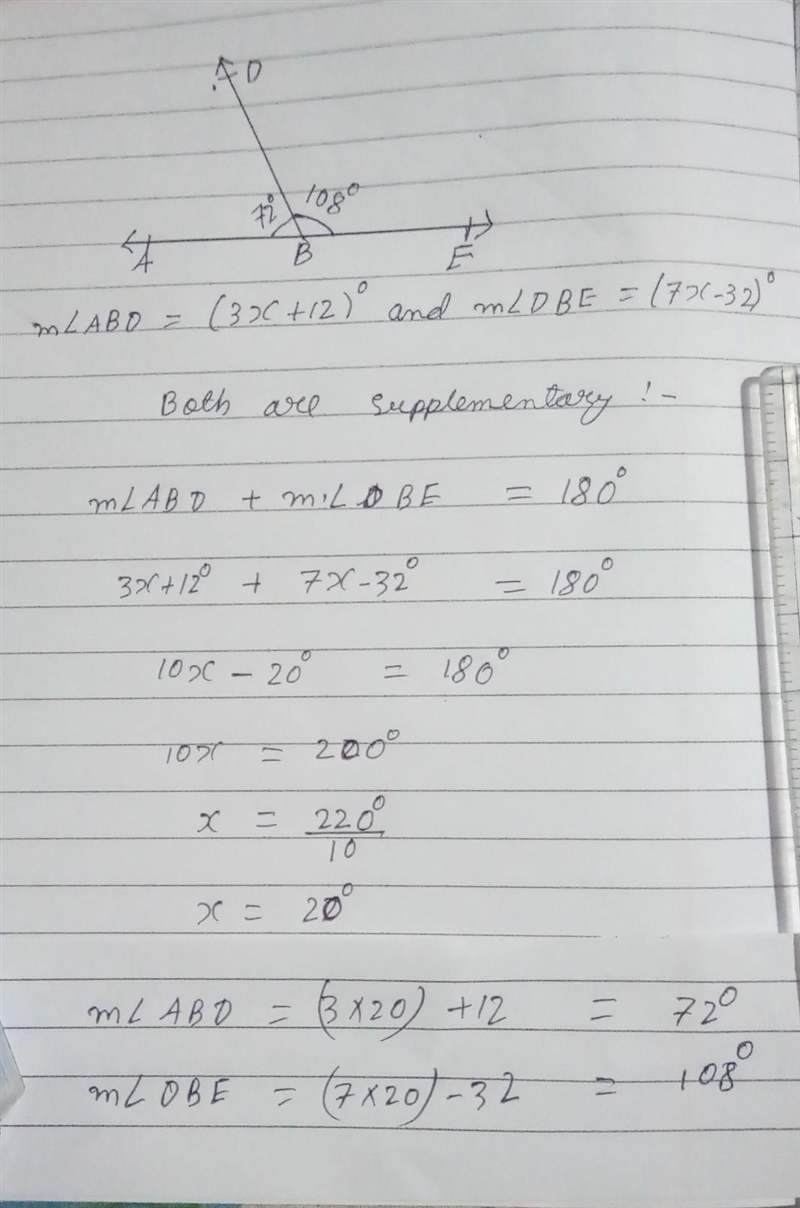 D
72° 108°
A B E
m∠ABD = (3x+12)° and m∠DBE = (7x-32)°
Both are supplementary :-
m∠ABD + m∠DBE = 180°
3x+12° + 7x-32° = 180°
10x - 20° = 180°
10x = 200°
x = 220°
10
x = 20°
m∠ABD = (3x20) +12 = 72°
m∠DBE = (7x20) -32 = 108°